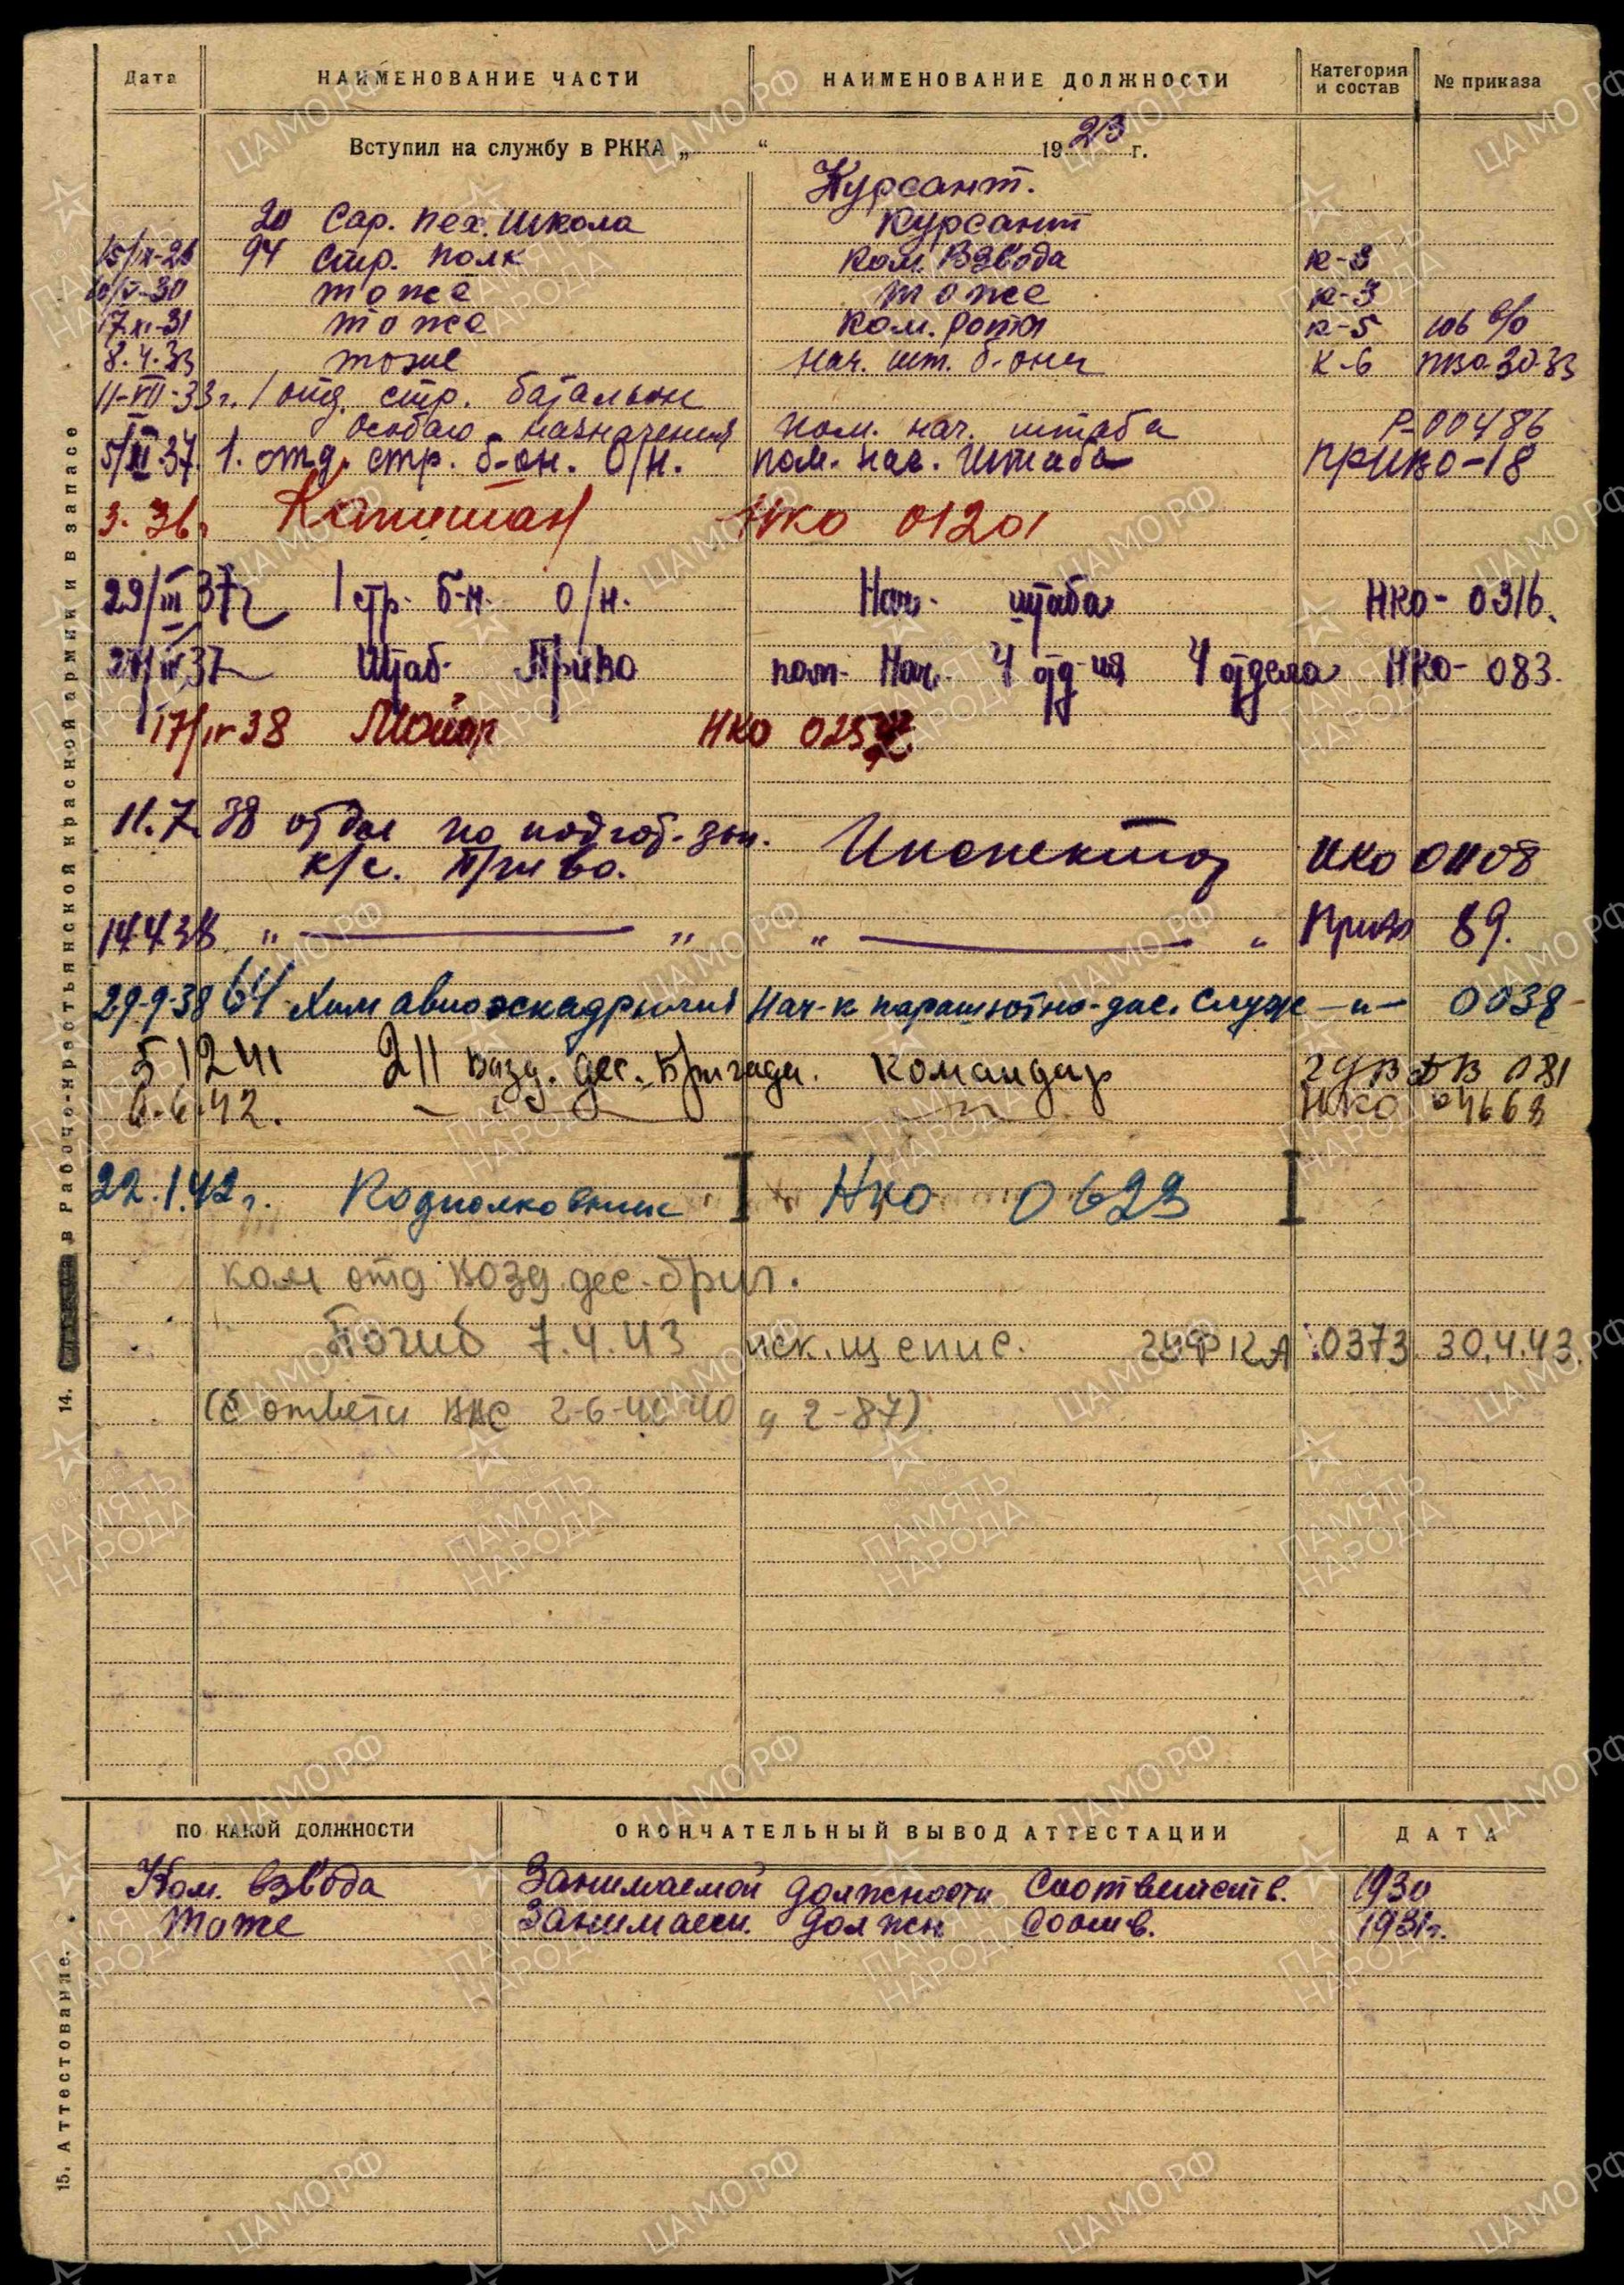 Дата НАИМЕНОВАНИЕ ЧАСТИ НАИМЕНОВАНИЕ ДОЛЖНОСТИ Категория и состав № приказа
Вступил на службу в РККА „ “ 1923 г.
Курсант.
20 Сар. пех. школа Курсант
94 Стр. полк Ком. Взвода к-3
тоже тоже к-3
17.XI-31 тоже Ком. роты к-5
8.4.33 тоже Нач. шт. б-она к-6
11-VII-33г. 1 отд. стр. батальон
особого назначения пом. нач. штаба Р-00486
5/III 37. 1. отд. стр. б-он. О/н. пом. нач. Штаба ПриВО-18
3. 36г Капитан НКО 01201
29/III 37г 1 стр. б-н. О/н. Нач. штаба НКО-0316.
37 Штаб ПриВО пом. Нач. 4 отд-ия 4 отдела НКО-083.
17/IV 38 Майор НКО
11.7.38 отдел по подгот. зап.
к/с. ПриВо. Инспектор НКО 01108
14.4.38 „ — „ „ — „ ПриВо 89.
29-9-38 64 Хим авиоэскадрилия Нач-к парашютно-дес. служ —„— 0038
5 12 41 211 возд. дес. Бригады. Командир ГУВДВ 081
6.6.42. —„— —„— НКО 04668
22.1.42г. Подполковник НКО 0623
ком отд возд. дес. бриг.
Погиб 7.4.43 иск. щ спис. ГУФКА 0373 30.4.43.
14. в Рабоче-крестьянской красной армии и в запасе
ПО КАКОЙ ДОЛЖНОСТИ ОКОНЧАТЕЛЬНЫЙ ВЫВОД АТТЕСТАЦИИ ДАТА
Ком. взвода Занимаемой должности Соответств. 1930
Тоже Занимаем. должн Соотв. 1931г.
15. Аттестование.
ЦАМО.РФ
ПАМЯТЬ НАРОДА